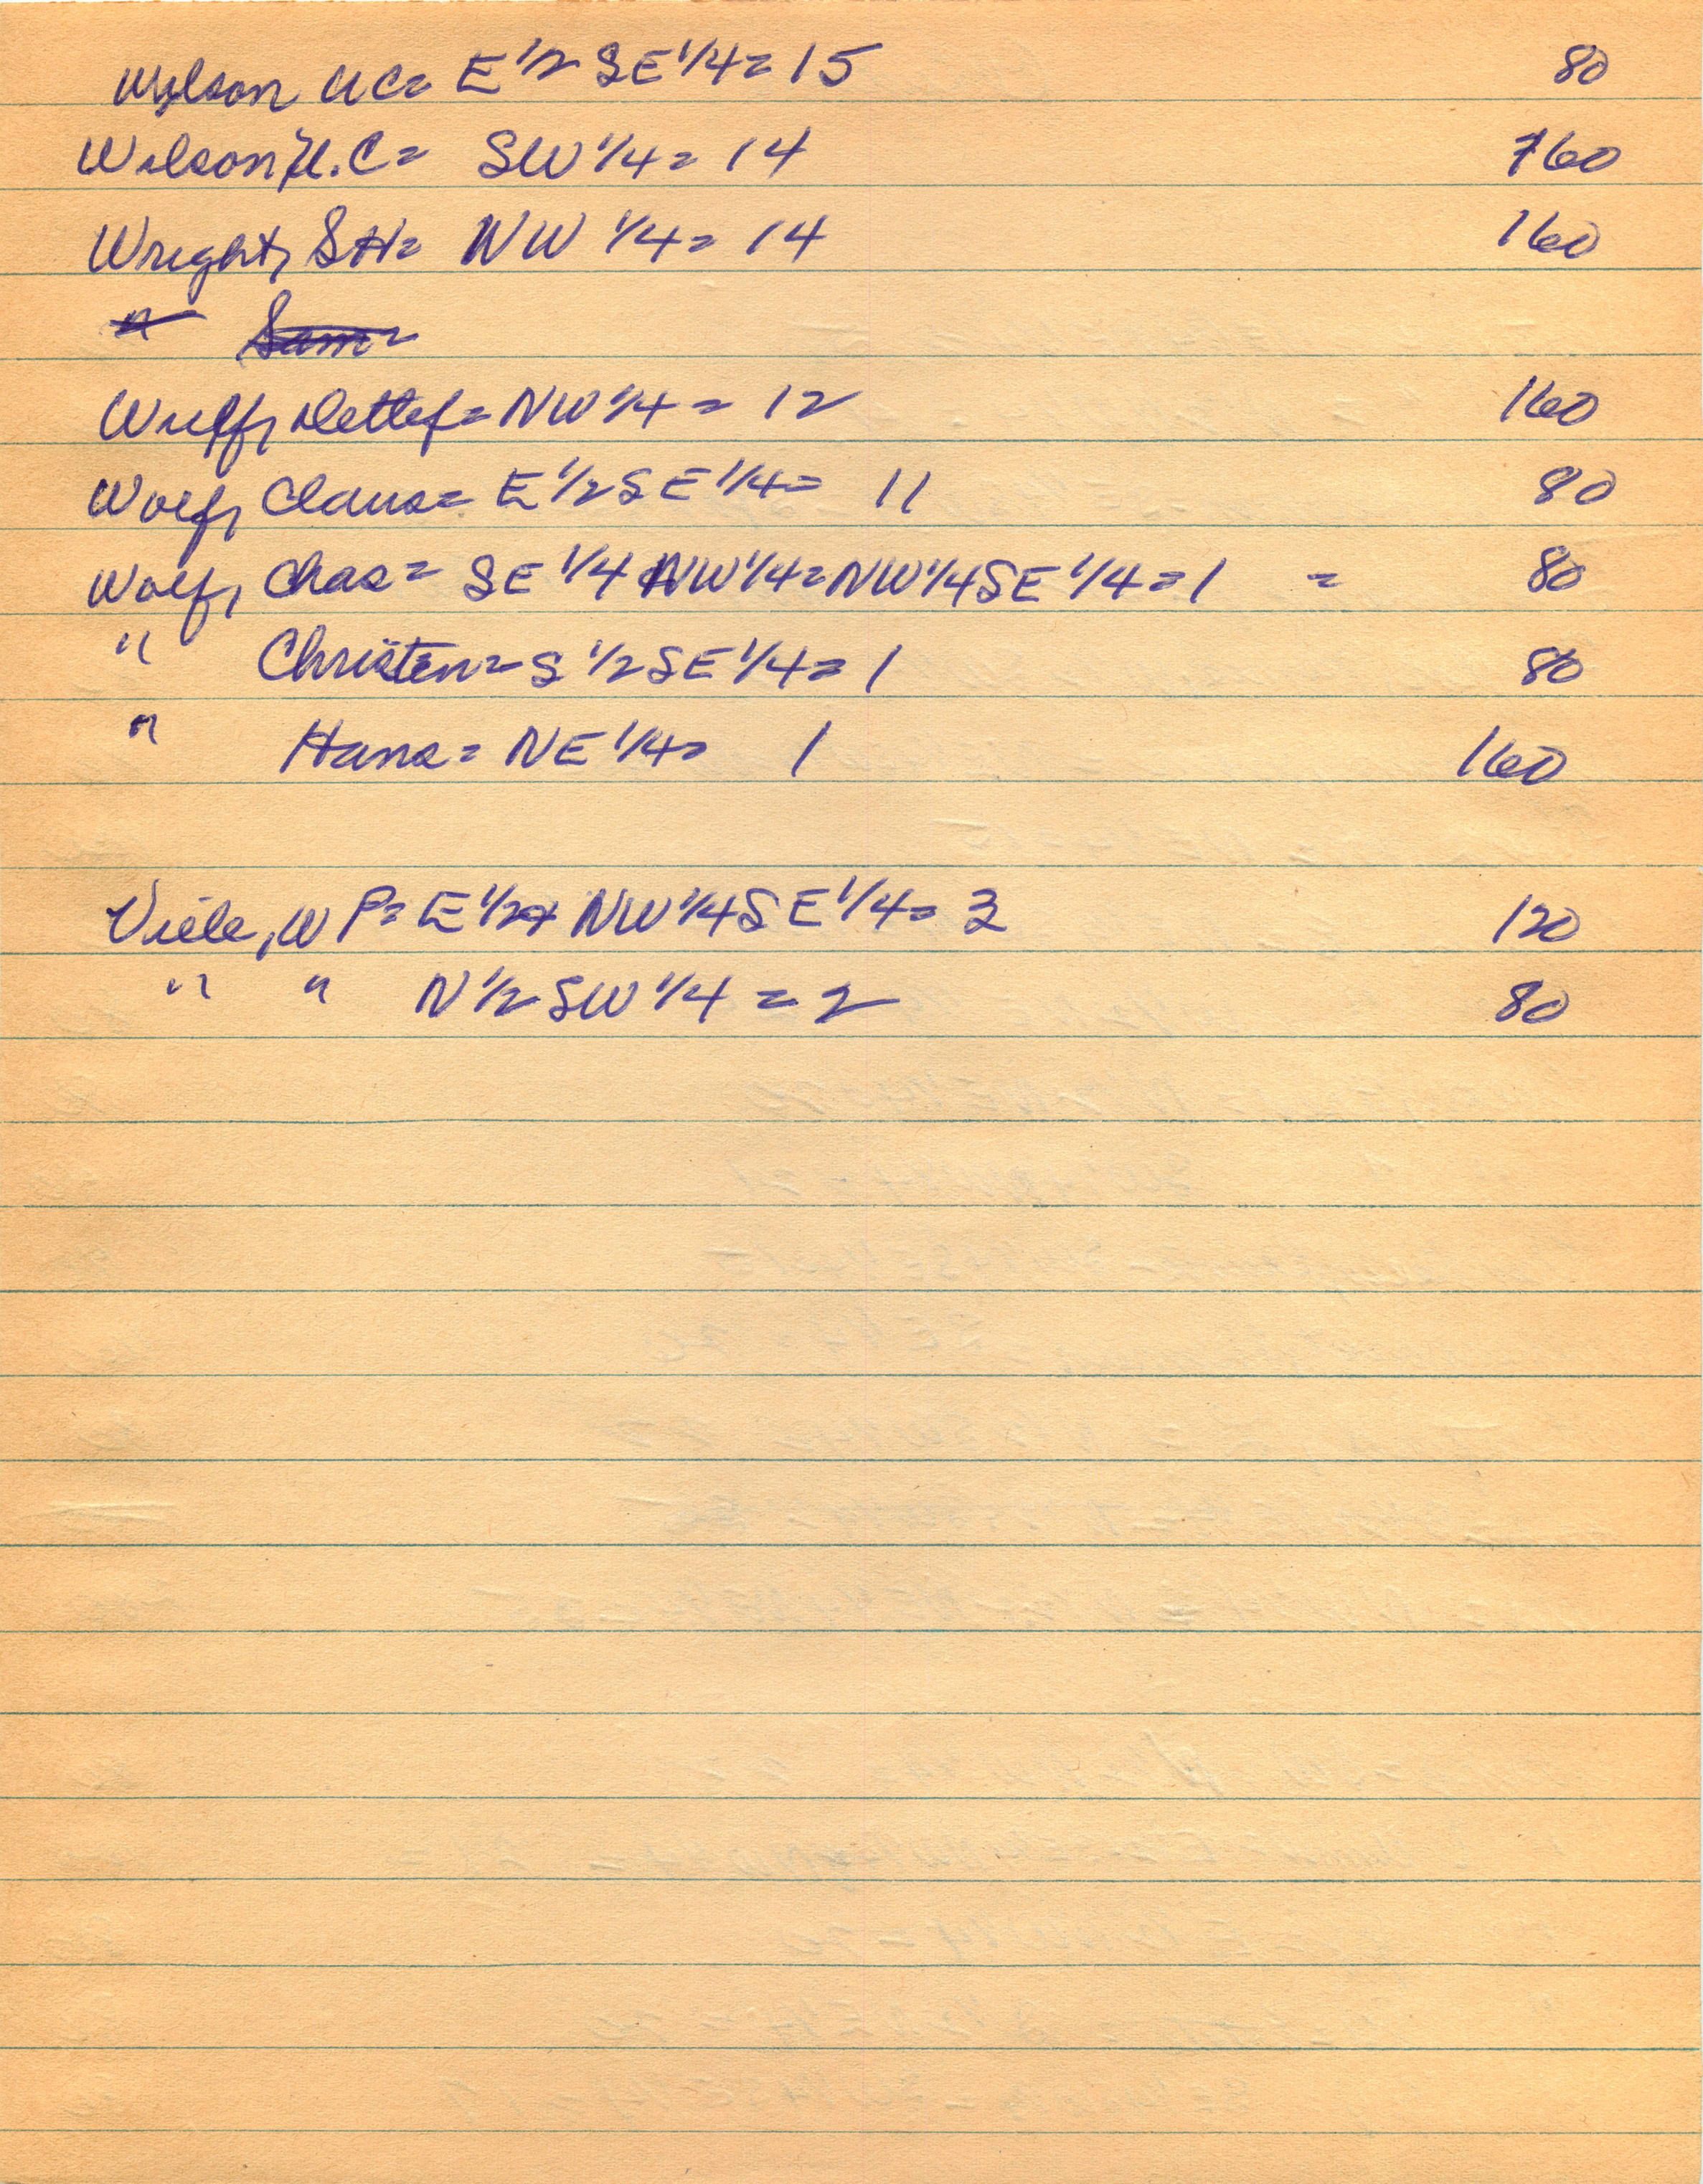 Wilson UC= E 1/2 SE 1/4= 15 80
Wilson, U.C= SW 1/4= 14 160
Wright, SH= NW 1/4= 14 160
" Sam=
Wulff, Detlef= NW 1/4= 12 160
Wolf, Claus= E 1/2 SE 1/4= 11 80
Wolf, Chas= SE 1/4 NW 1/4= NW 1/4 SE 1/4= 1 = 80
" Christen= S 1/2 SE 1/4= 1 80
" Hans= NE 1/4= 1 160
Viele, W P= E 1/2 + NW 1/4 SE 1/4= 3 120
" " N 1/2 SW 1/4 = 2 80